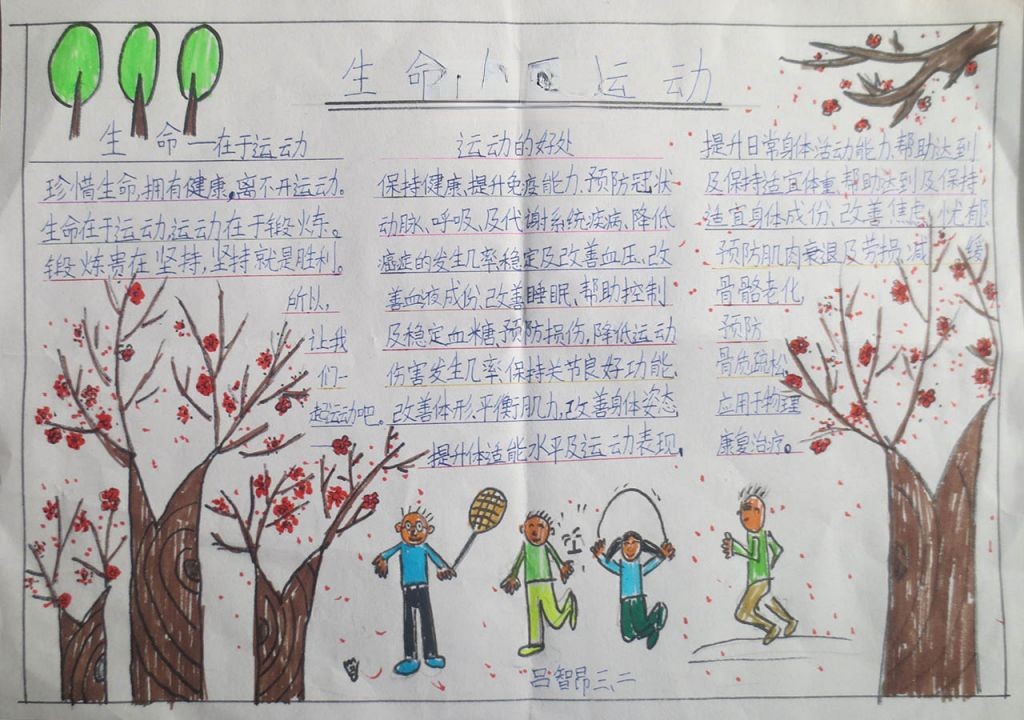 生命 运动
生命—在于运动
珍惜生命,拥有健康,离不开运动。
生命在于运动,运动在于锻炼。
锻炼贵在坚持,坚持就是胜利。
所以,
让我
们一
起运动吧。
运动的好处
保持健康、提升免疫能力、预防冠状
动脉、呼吸、及代谢系统疾病、降低
癌症的发生几率稳定及改善血压、改
善血液成份、改善睡眠、帮助控制
及稳定血糖、预防损伤,降低运动
伤害发生几率、保持关节良好功能、
改善体形、平衡肌力,改善身体姿态
提升体适能水平及运动表现、
提升日常身体活动能力、帮助达到
及保持适宜体重、帮助达到及保持
适宜身体成份、改善焦虑、忧郁
预防肌肉衰退及劳损、减缓
骨骼老化,
预防
骨质疏松,
应用于物理
康复治疗。
吕智昂三、二